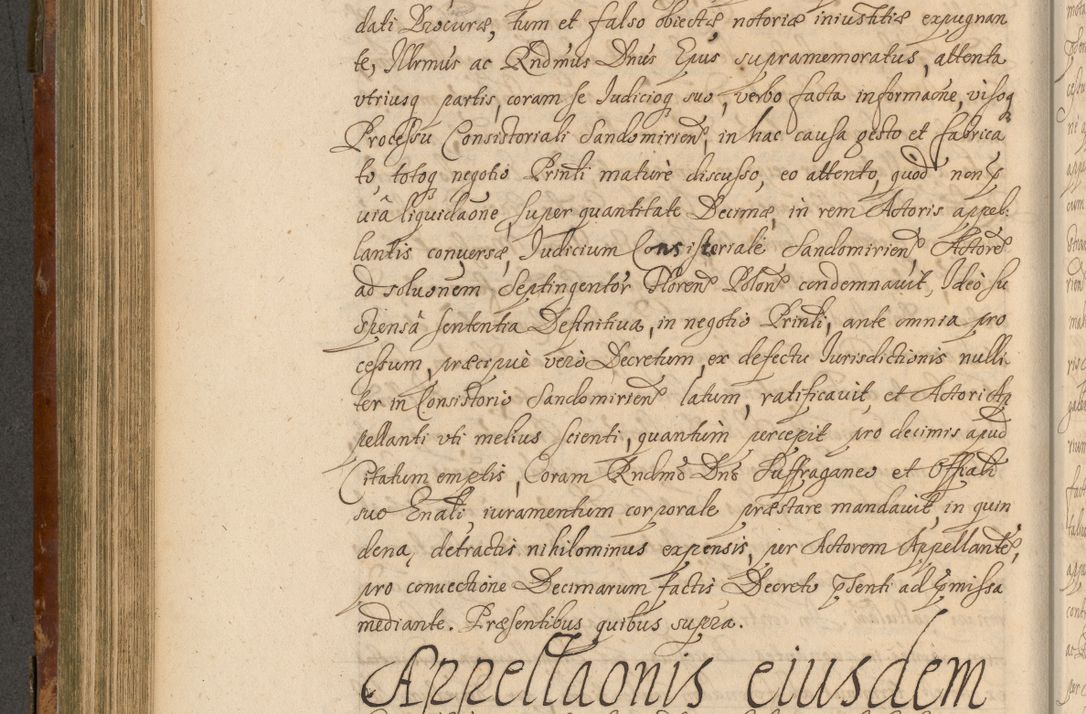 dati Procuræ, tum et falso obiectæ notoriæ iniustitiæ expugnan
te, Illrmus ac Rndmus Dnus Epus supramemoratus, attenta
vtriusq partis, coram se Iudicioq suo, verbo facta informaone, visoq
Processu Consistoriali Sandomirien, in hac causa gesto et fabrica
to, totoq negotio Printi maturè discusso, eo attento, quod non p
viâ liquidaone, super quantitate Decimæ, in rem Actoris appel:
lantis conversæ, Iudicium Consistoriale Sandomirien, Actorē
ad soluonem Septingentor Floren Polon condemnauit, Ideò su
spensâ sententia Definitiua, in negotio Prinli, ante omnia pro
cessum, præcipuè verò Decretum, ex defectu Iurisdictionis nulli
ter in Consistorio Sandomirien latum, ratificauit, et Actori Ap
pellanti vti melius scienti, quantum percepit pro decimis apud
Citatum emptis, Coram Rndmo Dno Suffraganeo et Offiali
suo Gnali iuramentum corporale præstare mandauit, in quin
dena, detractis nihilominus expensis, per Actorem Appellantē,
pro convectione Decimarum factis Decreto psenti ad pmissa
mediante. Præsentibus quibus supra.
Appellaonis eiusdem